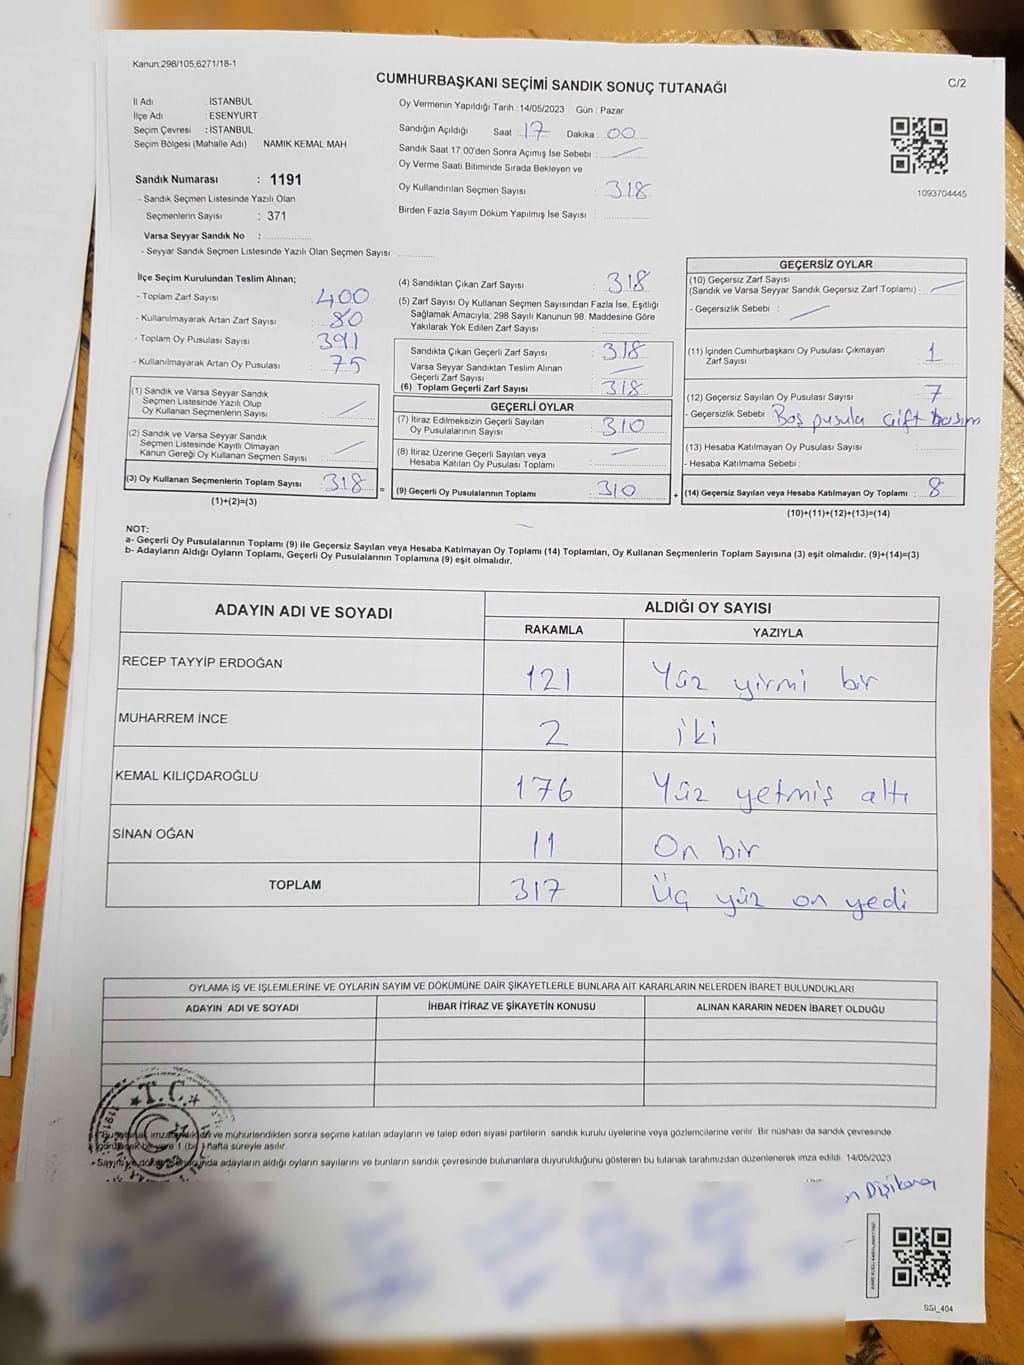 Kanun,298/105,6271/18-1
CUMHURBAŞKANI SEÇİMİ SANDIK SONUÇ TUTANAĞI
C/2
İl Adı : İSTANBUL
İlçe Adı : ESENYURT
Seçim Çevresi : İSTANBUL
Seçim Bölgesi (Mahalle Adı) : NAMIK KEMAL MAH
Sandık Numarası : 1191
- Sandık Seçmen Listesinde Yazılı Olan
Seçmenlerin Sayısı : 371
Varsa Seyyar Sandık No :
- Seyyar Sandık Seçmen Listesinde Yazılı Olan Seçmen Sayısı:
Oy Vermenin Yapıldığı Tarih : 14/05/2023 Gün : Pazar
Sandığın Açıldığı Saat : 17 Dakika : 00
Sandık Saat 17:00'den Sonra Açımış İse Sebebi :
Oy Verme Saati Bitiminde Sırada Bekleyen ve
Oy Kullandırılan Seçmen Sayısı : 318
Birden Fazla Sayım Döküm Yapılmış İse Sayısı :
1093704445
İlçe Seçim Kurulundan Teslim Alınan;
- Toplam Zarf Sayısı : 400
- Kullanılmayarak Artan Zarf Sayısı : 80
- Toplam Oy Pusulası Sayısı : 391
- Kullanılmayarak Artan Oy Pusulası : 75
(1) Sandık ve Varsa Seyyar Sandık
Seçmen Listesinde Yazılı Olup
Oy Kullanan Seçmenlerin Sayısı :
(2) Sandık ve Varsa Seyyar Sandık
Seçmen Listesinde Kayıtlı Olmayan
Kanun Gereği Oy Kullanan Seçmen Sayısı :
(3) Oy Kullanan Seçmenlerin Toplam Sayısı : 318 =
(1)+(2)=(3)
(4) Sandıktan Çıkan Zarf Sayısı : 318
(5) Zarf Sayısı Oy Kullanan Seçmen Sayısından Fazla İse, Eşitliği
Sağlamak Amacıyla; 298 Sayılı Kanunun 98. Maddesine Göre
Yakılarak Yok Edilen Zarf Sayısı :
Sandıkta Çıkan Geçerli Zarf Sayısı : 318
Varsa Seyyar Sandıktan Teslim Alınan
Geçerli Zarf Sayısı :
(6) Toplam Geçerli Zarf Sayısı : 318
GEÇERLİ OYLAR
(7) İtiraz Edilmeksizin Geçerli Sayılan
Oy Pusulalarının Sayısı : 310
(8) İtiraz Üzerine Geçerli Sayılan veya
Hesaba Katılan Oy Pusulası Toplamı :
(9) Geçerli Oy Pusulalarının Toplamı : 310 +
GEÇERSİZ OYLAR
(10) Geçersiz Zarf Sayısı
(Sandık ve Varsa Seyyar Sandık Geçersiz Zarf Toplamı) :
- Geçersizlik Sebebi :
(11) İçinden Cumhurbaşkanı Oy Pusulası Çıkmayan
Zarf Sayısı : 1
(12) Geçersiz Sayılan Oy Pusulası Sayısı : 7
- Geçersizlik Sebebi : Boş pusula çift basım
(13) Hesaba Katılmayan Oy Pusulası Sayısı :
- Hesaba Katılmama Sebebi :
(14) Geçersiz Sayılan veya Hesaba Katılmayan Oy Toplamı : 8
(10)+(11)+(12)+(13)=(14)
NOT:
a- Geçerli Oy Pusulalarının Toplamı (9) ile Geçersiz Sayılan veya Hesaba Katılmayan Oy Toplamı (14) Toplamları, Oy Kullanan Seçmenlerin Toplam Sayısına (3) eşit olmalıdır. (9)+(14)=(3)
b- Adayların Aldığı Oyların Toplamı, Geçerli Oy Pusulalarının Toplamına (9) eşit olmalıdır.
ADAYIN ADI VE SOYADI
ALDIĞI OY SAYISI
RAKAMLA YAZIYLA
RECEP TAYYİP ERDOĞAN 121 Yüz yirmi bir
MUHARREM İNCE 2 iki
KEMAL KILIÇDAROĞLU 176 Yüz yetmiş altı
SİNAN OĞAN 11 On bir
TOPLAM 317 Üç yüz on yedi
OYLAMA İŞ VE İŞLEMLERİNE VE OYLARIN SAYIM VE DÖKÜMÜNE DAİR ŞİKAYETLERLE BUNLARA AİT KARARLARIN NELERDEN İBARET BULUNDUKLARI
ADAYIN ADI VE SOYADI İHBAR İTİRAZ VE ŞİKAYETİN KONUSU ALINAN KARARIN NEDEN İBARET OLDUĞU
T.C.
ve mühürlendikten sonra seçime katılan adayların ve talep eden siyasi partilerin sandık kurulu üyelerine veya gözlemcilerine verilir. Bir nüshası da sandık çevresinde
hafta süreyle asılır.
adayların aldığı oyların sayılarını ve bunların sandık çevresinde bulunanlara duyurulduğunu gösteren bu tutanak tarafımızdan düzenlenerek imza edildi. 14/05/2023
SSI_404